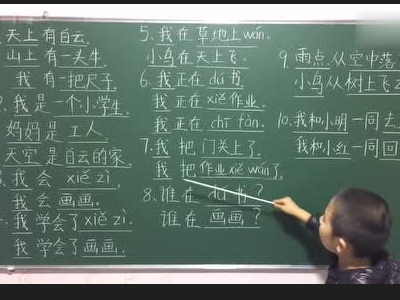 天上有白云。
山上有一头牛
我有一把尺子。
我是一个小学生。
妈妈是工人。
天空是白云的家。
我会 xiě zì.
我会画画。
我学会了 xiě zì.
我学会了画画.
5.我在草地上 wán.
小鸟在天上飞.
6.我正在 dú 书.
我正在 xiě 作业.
我正在 chī fàn.
7.我把门关上了.
我把作业 xiě wán了.
8.谁在 dú 书？
谁在画画？
9.雨点从空中落
小鸟从树上飞
10.我和小明一同去
我和小红一同回